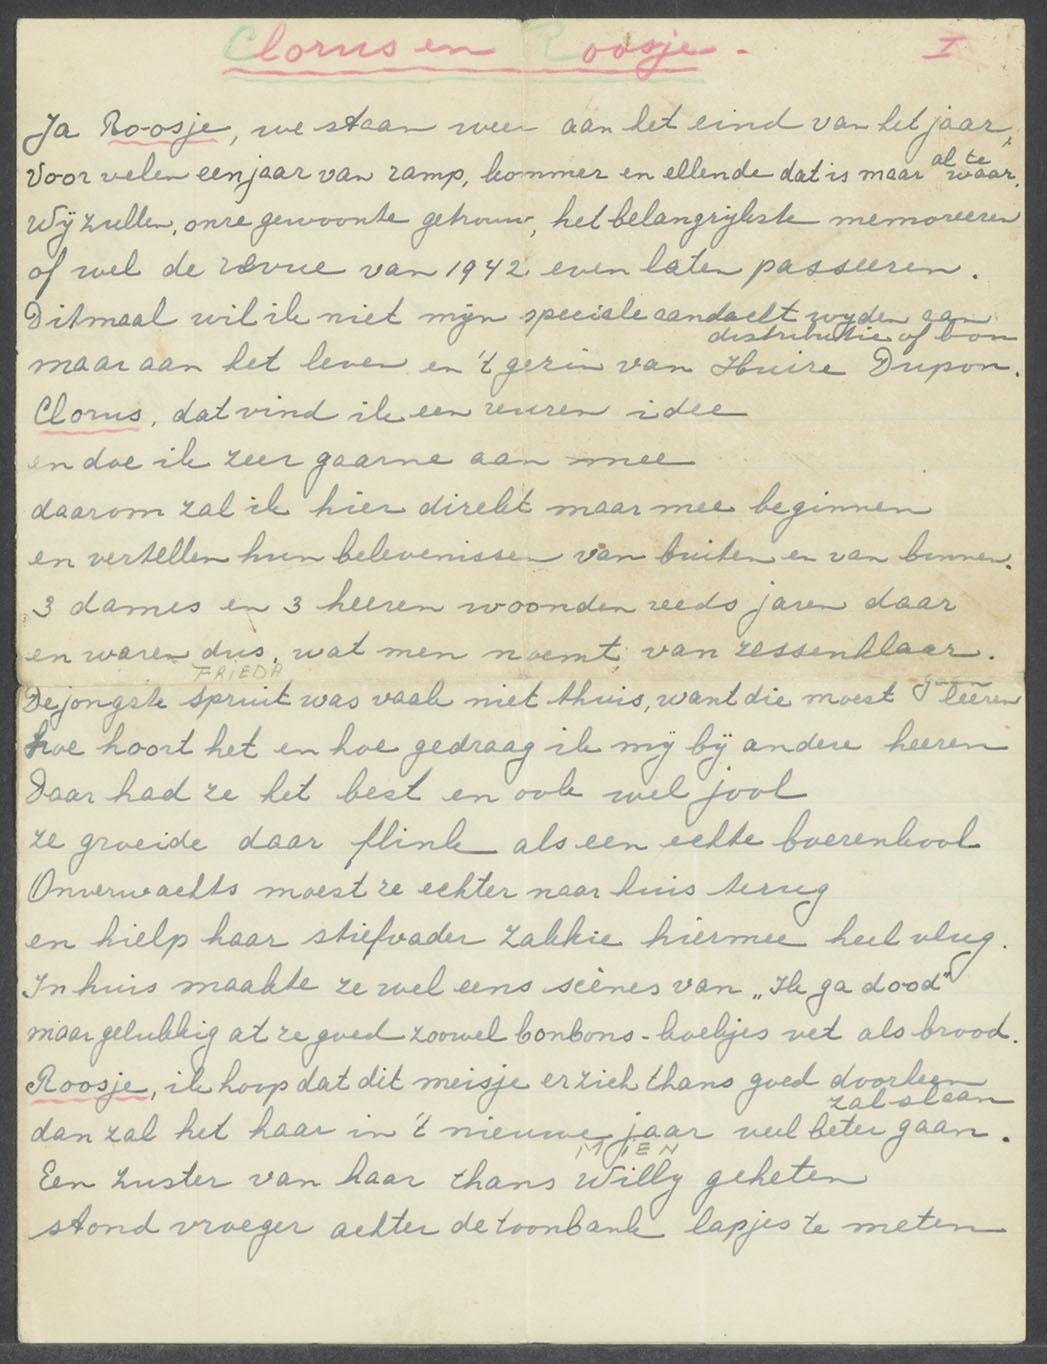 Clorus en Roosje - I
Ja Roosje, we staan weer aan het eind van het jaar,
Voor velen een jaar van ramp, kommer en ellende dat is maar al te waar.
Wij zullen, onze gewoonte getrouw, het belangrijkste memoreeren
of wel de revue van 1942 even laten passeeren.
Ditmaal wil ik niet mijn speciale aandacht wijden aan
distributie of bon
maar aan het leven en 't gezin van Huize Dupon.
Clorus, dat vind ik een reuzen idee
en doe ik zeer gaarne aan mee
daarom zal ik hier direkt maar mee beginnen
en vertellen hun belevenissen van buiten en van binnen.
3 dames en 3 heeren woonden reeds jaren daar
en waren dus, wat men noemt, van zessenklaar.
FRIEDA
De jongste spruit was vaak niet thuis, want die moest gaan leeren
hoe hoort het en hoe gedraag ik mij bij andere heeren
Daar had ze het best en ook wel jool
ze groeide daar flink als een echte boerenkool
Onverwachts moest ze echter naar huis terug
en hielp haar stiefvader Zakkie hiermee heel vlug.
In huis maakte ze wel eens scènes van „Ik ga dood"
maar gelukkig at ze goed zoowel bonbons-koekjes vet als brood.
Roosje, ik hoop dat dit meisje er zich thans goed doorheen
zal slaan
dan zal het haar in 't nieuwe jaar veel beter gaan.
MIEN
Een zuster van haar thans Willy geheten
stond vroeger achter de toonbank lapjes te meten